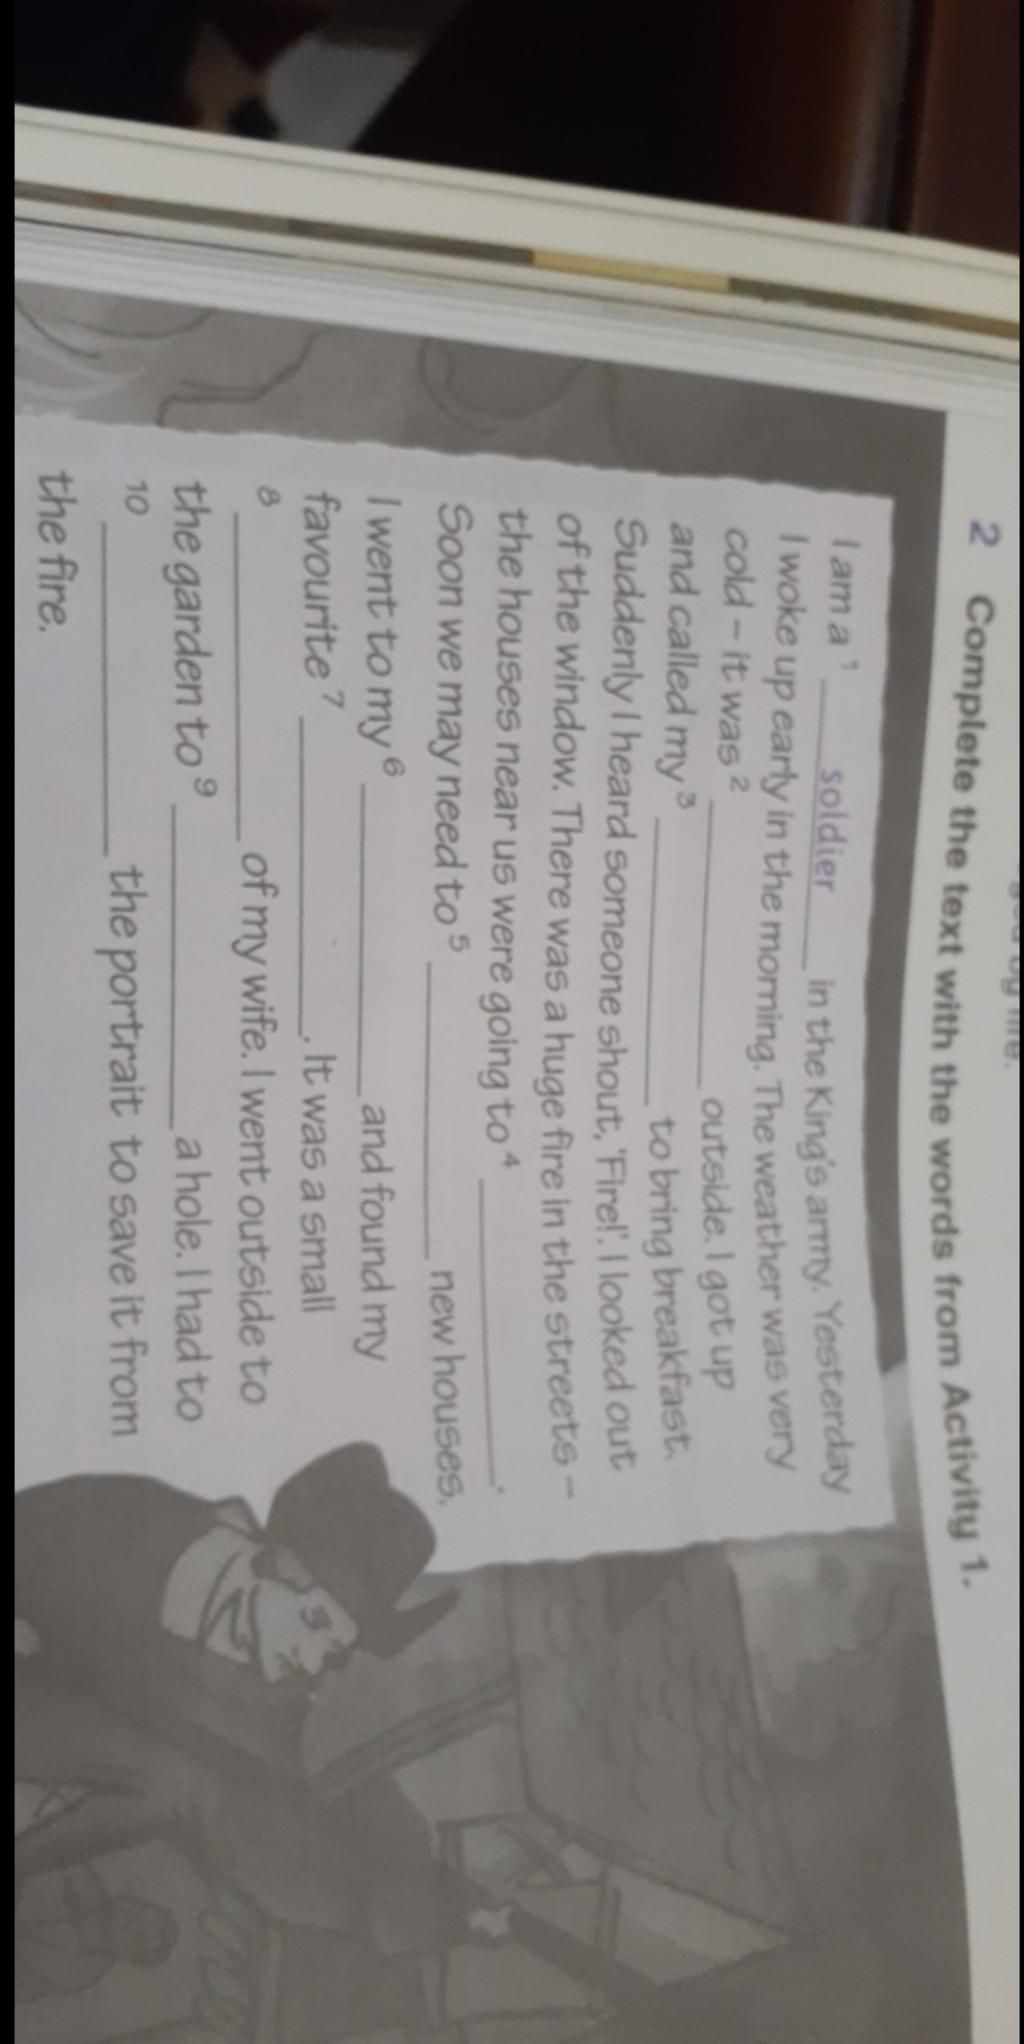 2 Complete the text with the words from Activity 1.
I am a 1 soldier in the King's army. Yesterday
I woke up early in the morning. The weather was very
cold – it was 2 ________ outside. I got up
and called my 3 ________ to bring breakfast.
Suddenly I heard someone shout, 'Fire!'. I looked out
of the window. There was a huge fire in the streets –
the houses near us were going to 4 ________.
Soon we may need to 5 ________ new houses.
I went to my 6 ________ and found my
favourite 7 ________. It was a small
8 ________ of my wife. I went outside to
the garden to 9 ________ a hole. I had to
10 ________ the portrait to save it from
the fire.